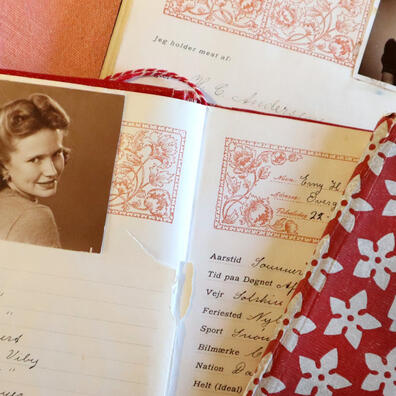 Jeg holder mest af:
Navn Emy H
Adresse Everg
Fødselsdag 22
Aarstid Sommer
Tid paa Døgnet Af
Vejr Solskin
Feriested Nyb
Sport
Bilmærke
Nation Da
Helt (Ideal)
Viby